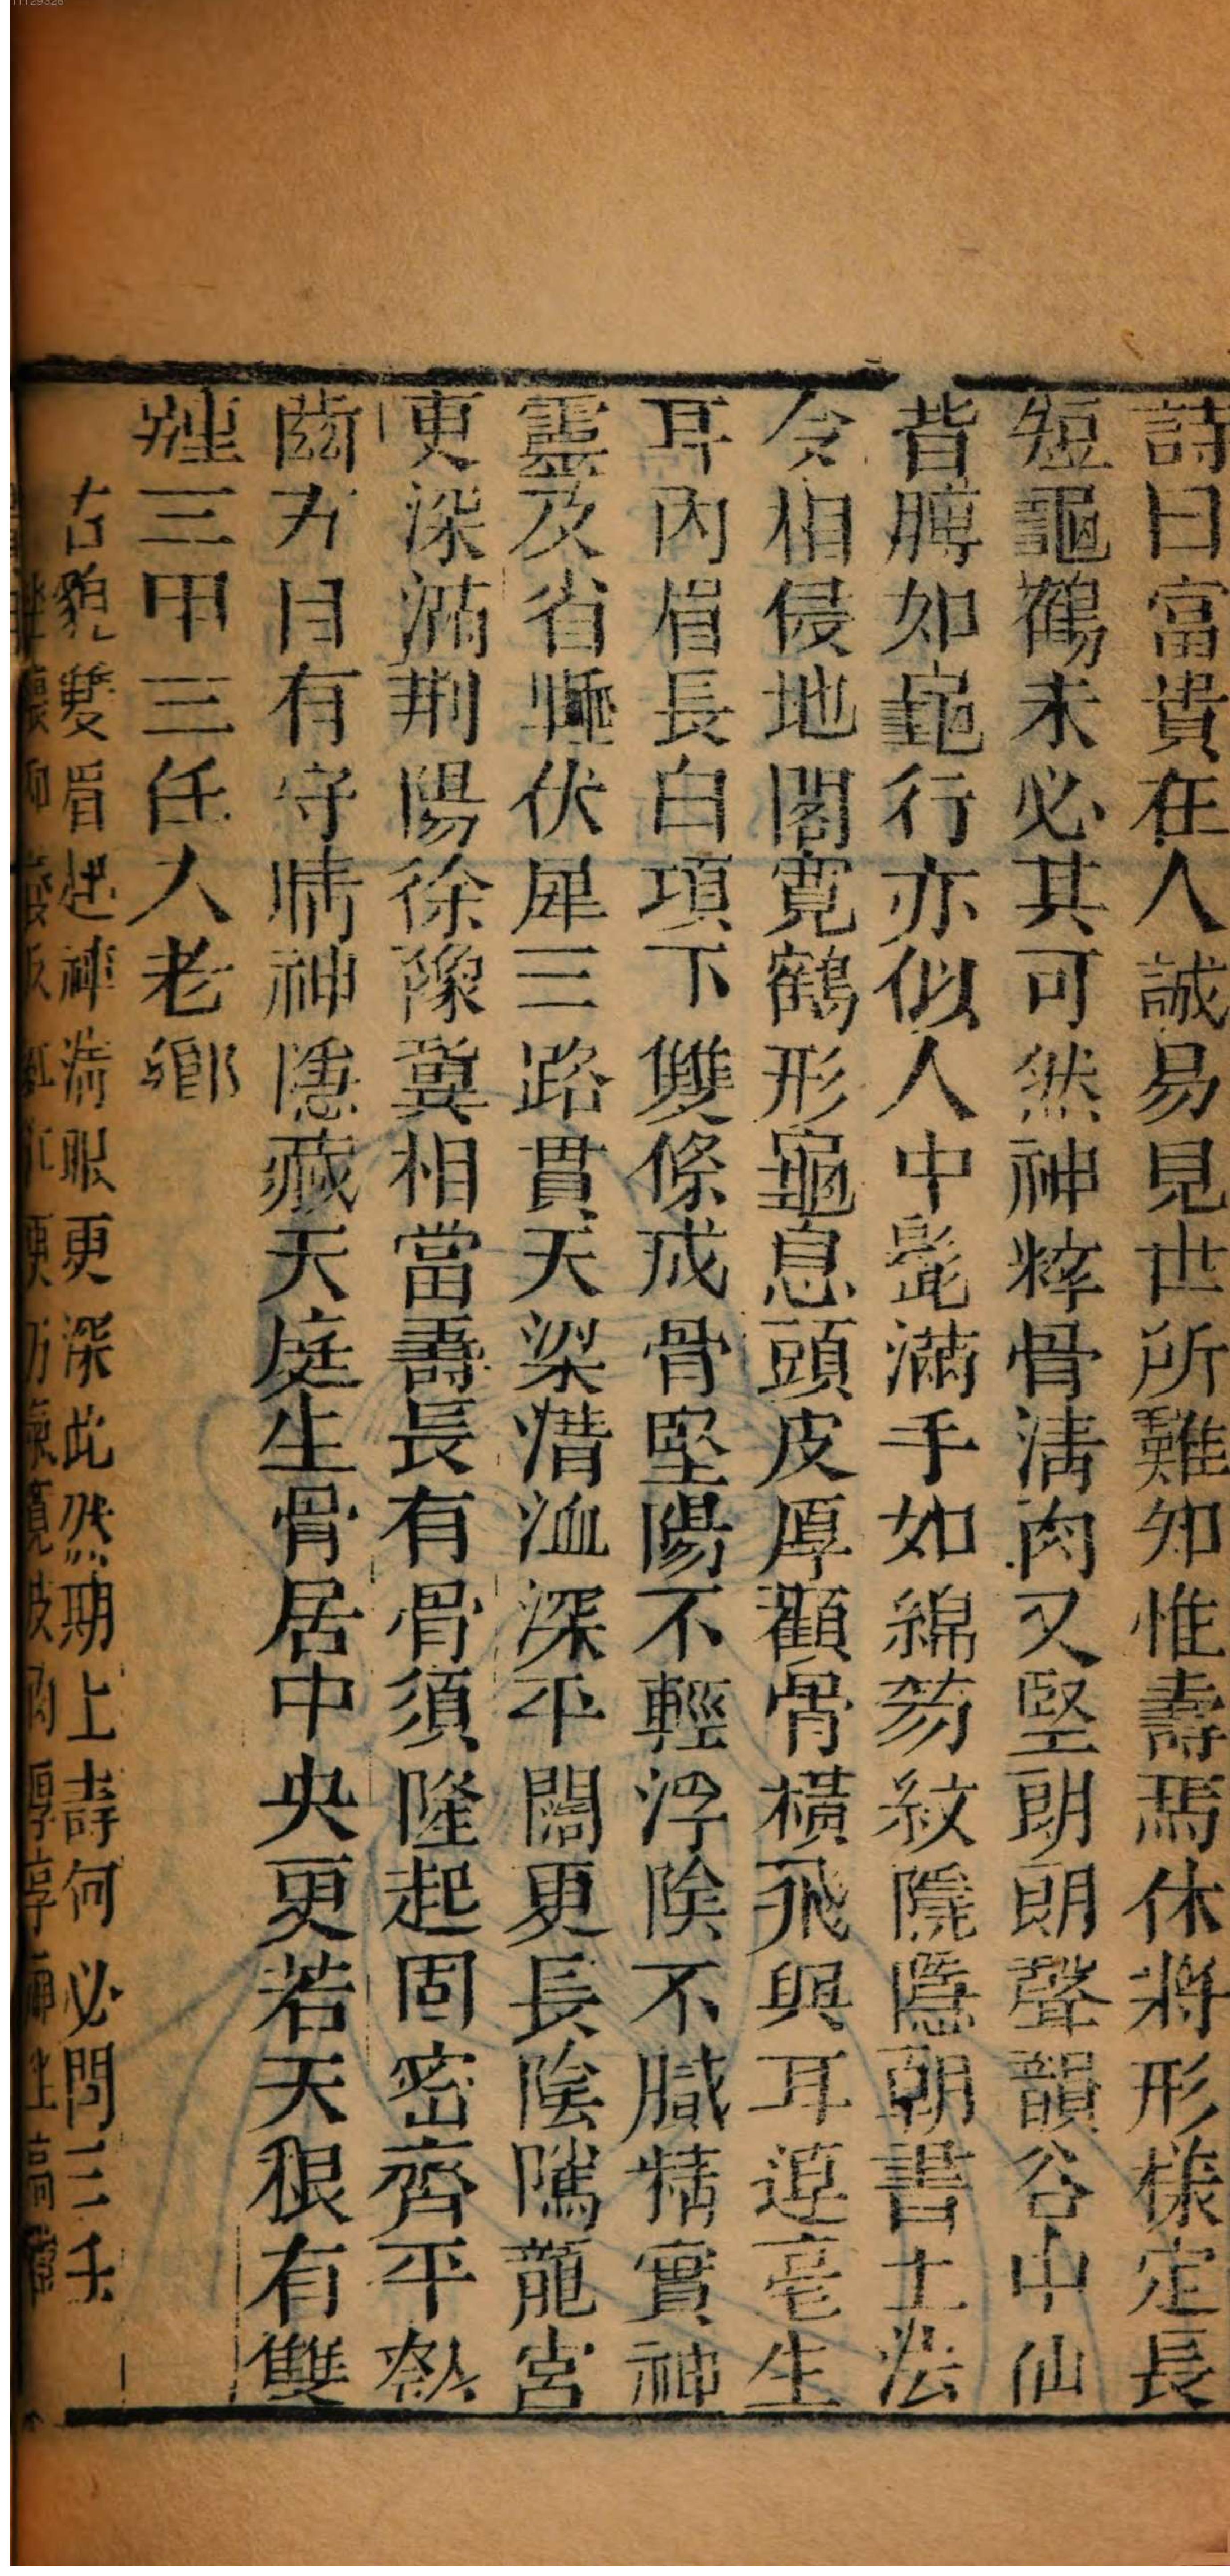 詩曰富貴在人誠易見世所難知惟壽焉休將形樣定長
短龜鶴未必其可然神粹骨清肉又堅朗朗聲韻谷中仙
背膊如龜行亦似人中髭滿手如綿笏紋隠隱朝書上法
令相侵地閣寛鶴形龜息頭皮厚顴骨橫飛與耳連毫生
耳內眉長白項下雙條成骨堅陽不輕浮陰不膱精實神
靈及省睡伏犀三路貫天梁溝洫深平闊更長陰隲龍宮
更深滿荆陽徐豫冀相當壽長有骨須隆起固密齊平
齒力日有守睛神隱藏天庭生骨居中央更若天根有雙
三甲三任人老鄉
古貌雙眉起神清眼更深此然期上壽何必問三壬